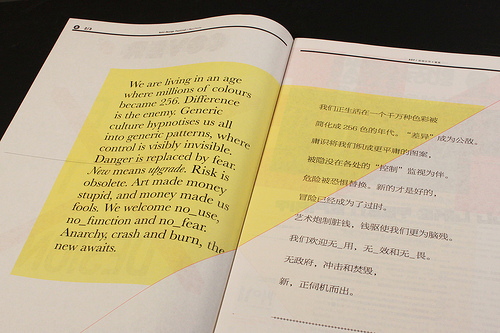 We are living in an age
where millions of colours
became 256. Difference
is the enemy. Generic
culture hypnotises us all
into generic patterns, where
control is visibly invisible.
Danger is replaced by fear.
New means upgrade. Risk is
obsolete. Art made money
stupid, and money made us
fools. We welcome no_use,
no_function and no_fear.
Anarchy, crash and burn, the
new awaits.
我们正生活在一个千万种色彩被
简化成 256 色的年代。“差异”成为公敌。
庸识将我们织成更平庸的图案，
被隐没在各处的“控制”监视为伴。
危险被恐惧替换。新的才是好的，
冒险已经成为了过时。
艺术炮制脏钱，钱驱使我们更为脑残。
我们欢迎无_用，无_效和无_畏。
无政府，冲击和焚毁，
新，正伺机而出。